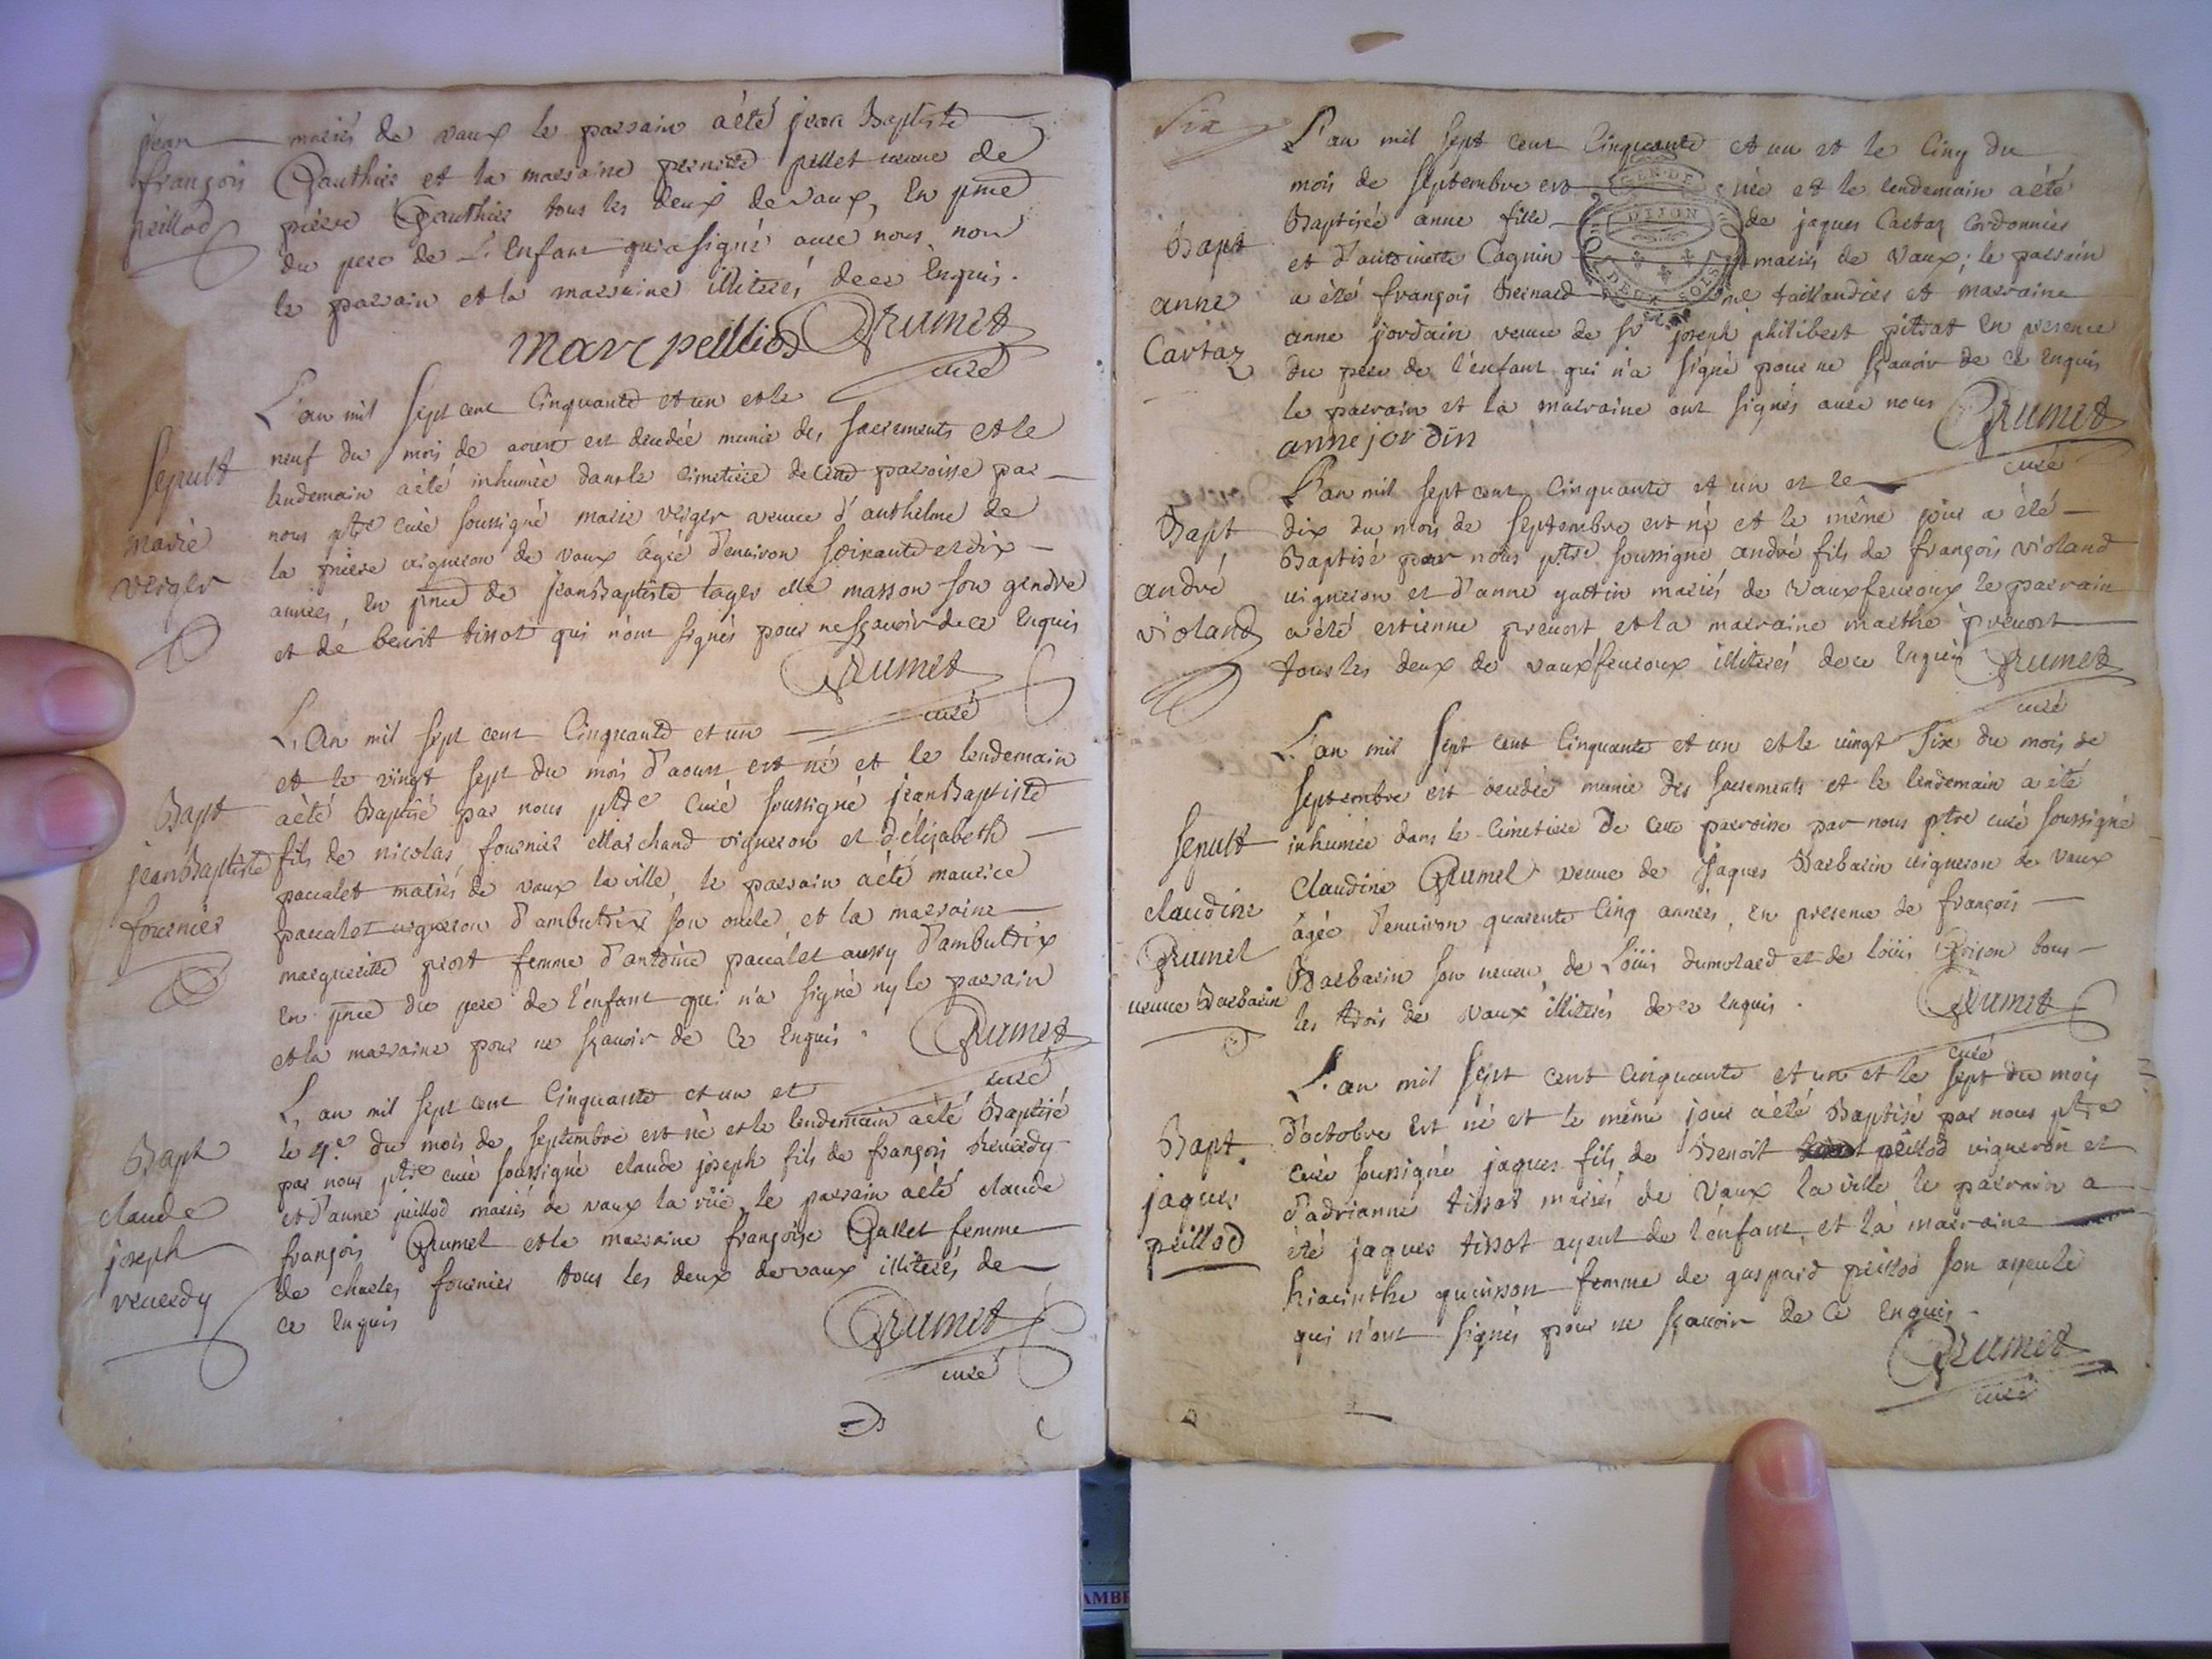 jean
françois
peillod
mariés de vaux le parrain a été jean Baptiste
Gauthier et la marraine pernette pellet veuve de
pierre Gauthier tous les deux de vaux, en pnce
du pere de L'Enfant qui a signé avec nous, non
le parrain et la marraine illiterés de ce Enquis.
marc peillios Grumet
curé
Sepult
marie
verger
L'an mil sept cent Cinquante et un et le
neuf du mois de aoust est decedée munie des sacrements et le
lendemain a été inhumée dans le cimetiere de cette parroisse par
nous ptre curé soussigné marie verger veuve d'anthelme de
la priere vigneron de vaux âgée d'environ soixante et dix
années, En pnce de jean Baptiste tager me masson son gendre
et de benoit tissot qui n'ont signés pour ne sçavoir de ce Enquis
Grumet
curé
Bapt
jean Baptiste
fournier
L'An mil sept cent Cinquante et un
et le vingt sept du mois d'aoust est né et le lendemain
a été Baptisé par nous ptre Curé soussigné jean Baptiste
fils de nicolas fournier Marchand vigneron et d'élizabeth
pacalet mariés de vaux la ville, le parrain a été maurice
pacalet vigneron d'ambutrix son oncle, et la marraine
marguerite prost femme d'antoine pacalet aussy d'ambutrix
En pnce du pere de l'enfant qui n'a signé ny le parrain
et la marraine pour ne sçavoir de Ce Enquis. Grumet
curé
Bapt
claude
joseph
reverdy
L'an mil sept cent Cinquante et un et
le 4e du mois de septembre est né et le lendemain a été Baptisé
par nous ptre curé soussigné claude joseph fils de françois Reverdy
et d'anne peillod mariés de vaux la viie, le parrain a été claude
françois Grumel et la marraine françoise Gallet femme
de charles fournier tous les deux de vaux illiterés de
ce Enquis
Grumet
curé
Six
Bapt
anne
Cartaz
L'an mil sept cent Cinquante et un et le Cinq du
mois de septembre est née et le lendemain a été
GEN·DE
DIJON
DEUX SOLS
Baptisée anne fille de jaques Cartaz Cordonnier
et d'antoinette Cagnin mariés de Vaux; le parrain
a été françois Bernard me taillandier et marraine
anne jordain veuve de sr joseph philibert pitrat En presence
du pere de l'enfant qui n'a signé pour ne sçavoir de ce Enquis
le parrain et la marraine ont signés avec nous
anne jordin Grumet
curé
Bapt
andré
violand
L'an mil sept cent Cinquante et un et le
dix du mois de septembre est né et le même jour a été
Baptisé par nous ptre soussigné andré fils de françois violand
vigneron et d'anne guttin mariés de Vauxfevroux le parrain
a été estienne prevost et la marraine marthe prevost
tous les deux de vauxfevroux illiterés de ce Enquis Grumet
curé
Sepult
claudine
Grumel
veuve Barbarin
L'an mil sept cent Cinquante et un et le vingt six du mois de
septembre est decedée munie des sacrements et le lendemain a été
inhumée dans le Cimetiere de cette parroisse par nous ptre curé soussigné
Claudine Grumel veuve de jaques Barbarin vigneron de vaux
âgée d'environ quarente Cinq années, En presence de françois
Barbarin son neveu, de Loüis dumolard et de loüis Grison tous
les trois de vaux illiterés de ce Enquis.
Grumet
curé
Bapt.
jaques
peillod
L'an mil sept cent Cinquante et un et le sept du mois
d'octobre Est né et le même jour a été Baptisé par nous ptre
curé soussigné jaques fils de Benoit peillod vigneron et
d'adrianne tissot mariés de Vaux la ville le parrain a
été jaques tissot ayeul de l'enfant et la marraine
hiacinthe quinson femme de gaspard peillod son ayeule
qui n'ont signés pour ne sçavoir de Ce Enquis.
Grumet
curé